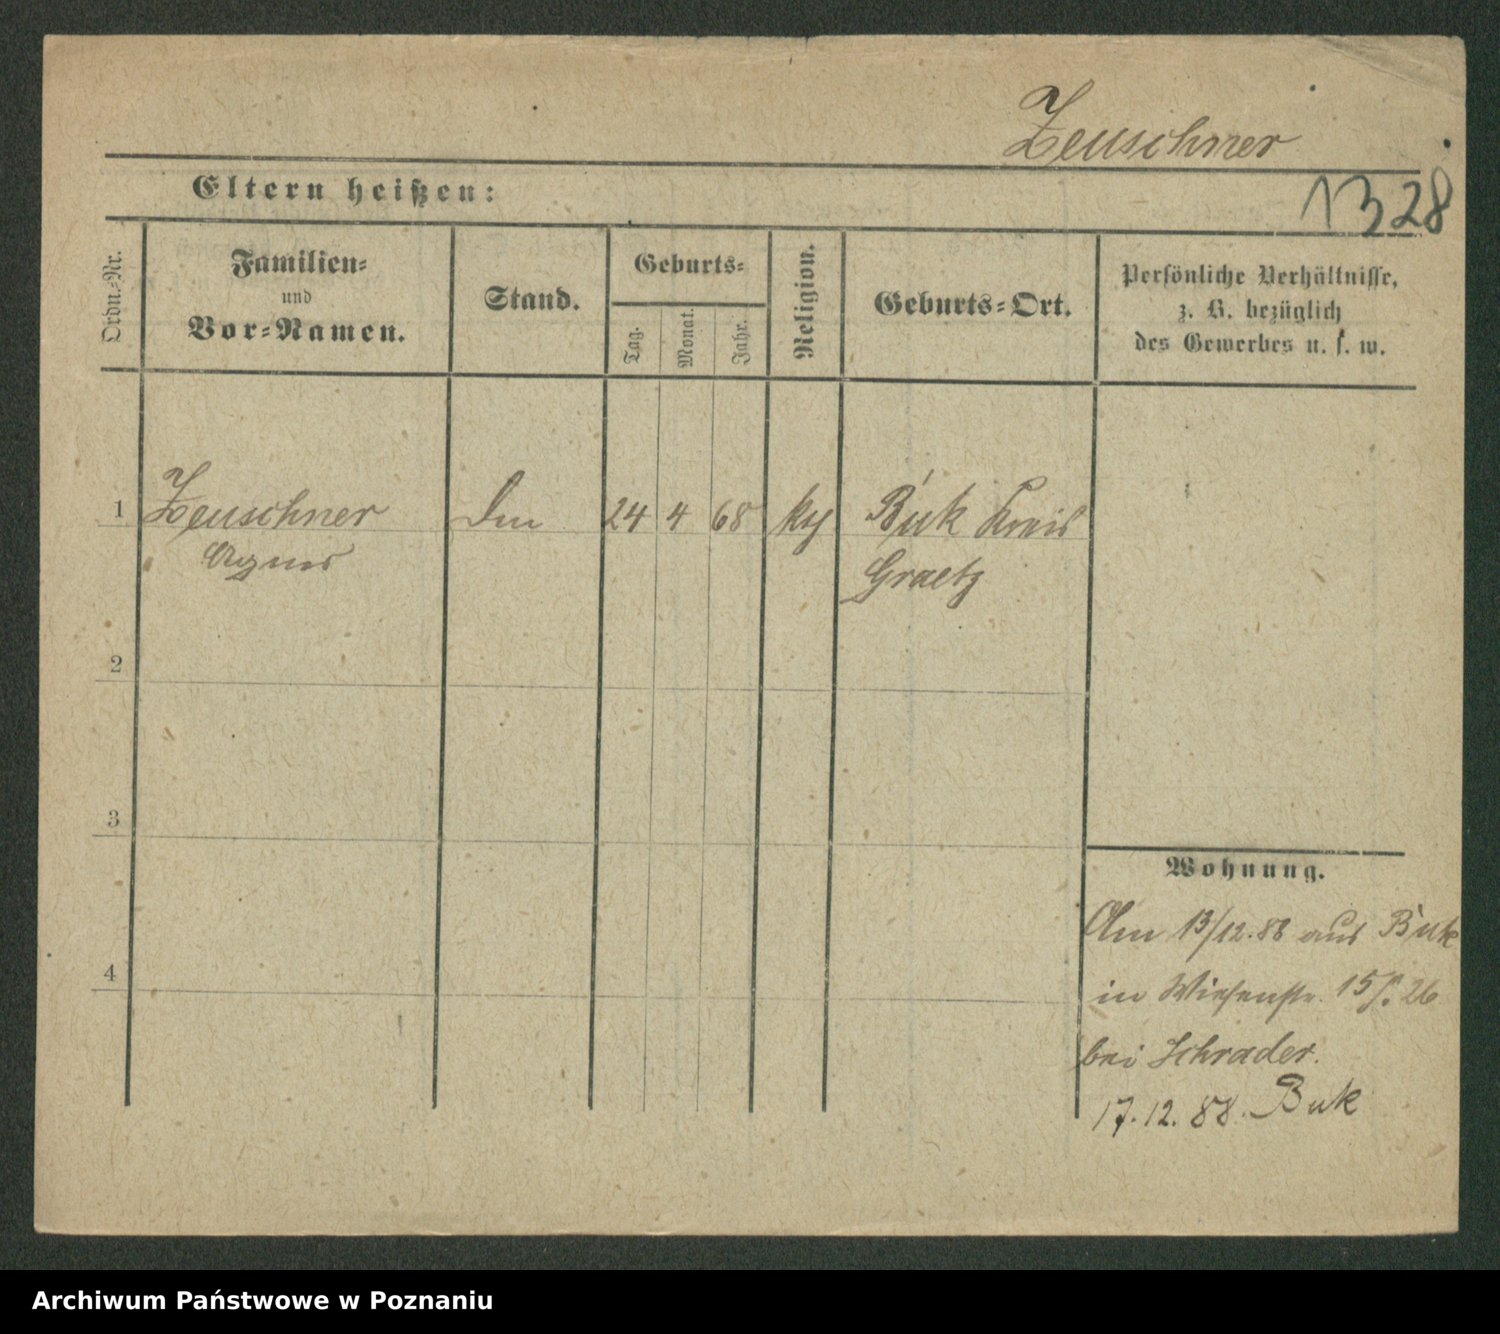 Zeuschner
Eltern heißen:
1328
Ordn.-Nr.
Familien-
und
Vor-Namen.
Stand.
Geburts-
Tag.
Monat.
Jahr.
Religion.
Geburts-Ort.
Persönliche Verhältnisse,
z. B. bezüglich
des Gewerbes u. s. w.
1 Zeuschner 24 4 68 Buk Kreis
Agnes Graetz
2
3
4
Wohnung.
Am 13/12.88 aus Buk
in Wiesenstr. 15
bei Schrader.
17.12.88. Buk
Archiwum Państwowe w Poznaniu